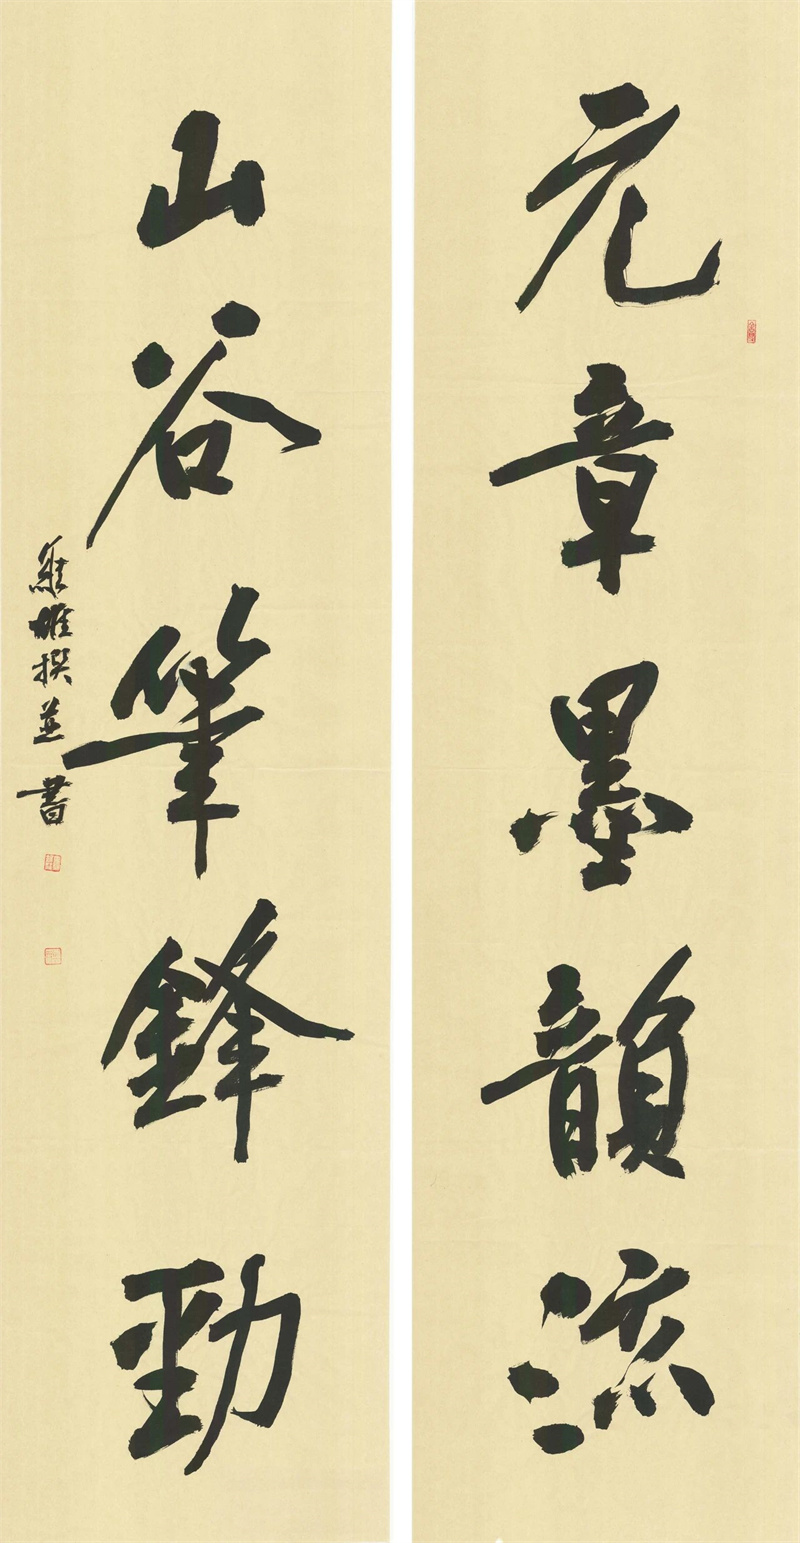 元章墨韻流
山谷筆鋒勁
雄撰並書